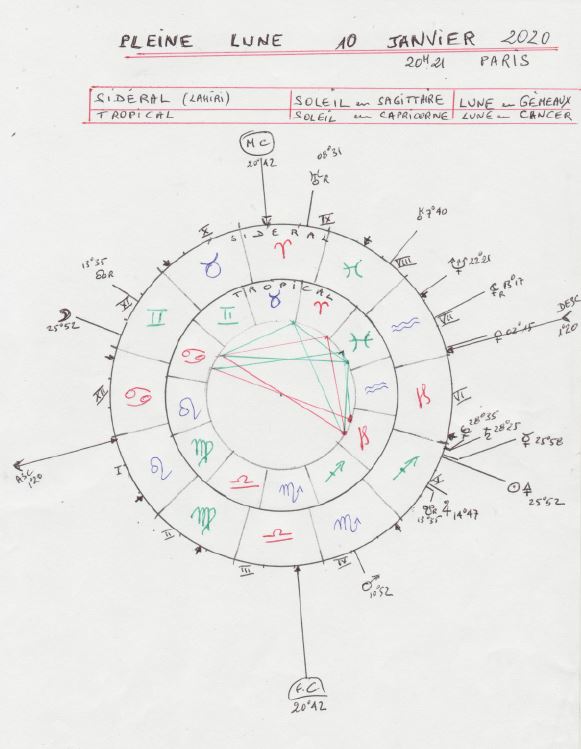 PLEINE LUNE 10 JANVIER 2020
20H21 PARIS
SIDÉRAL (LAHIRI) SOLEIL en SAGITTAIRE LUNE en GÉMEAUX
TROPICAL SOLEIL en CAPRICORNE LUNE en CANCER
MC
20°42
08°31
R
7°40
X
IX
SIDERAL
♈
♓
♉
VIII
22°21
13°35
R
13°17
R
XI
TROPICAL
♊
♉
♈
♒
VII
DESC
1°20
02°15
☽
25°52
♊
♋
♓
♒
XII
♋
♌
♑
VI
28°35
♄ 28°25
☿ 25°58
ASC
1°20
I
♌
♍
♎
♏
♐
♑
♐
V
25°52
R
13°35
14°47
II
♍
♎
♏
III
IV
♂
10°52
F.C
20°42